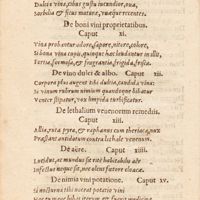 Dulcia vina, cibus gustu iucundior, oua,
Sorbilia & ficus mature, vuæque recentes.
De boni vini proprietatibus.
Caput xi.
Vina probantur odore, sapore, nitore, colore,
Si bona vina cupis, quinque hæc laudantur in illis,
Fortia, formosa, & fragrantia, frigida, frisca.
De vino dulci & albo. Caput xij.
Corpora plus augent tibi dulcia, candida vina:
Si vinum rubrum nimium quandoque bibatur
Venter stipatur, vox limpida turbificatur.
De lethalium venenorum remediis.
Caput xiij.
Allia, ruta, pyra, & raphanus cum theriaca, nux
Præstant antidotum contra lethale venenum.
De aëre. Caput xiiij.
Lucidus, ac mundus sit rite habitabilis aër
Infectus neque sit, nec olens fœtore cloacæ.
De nimia vini potatione. Caput xv.
Si nocturna tibi noceat potatio vini